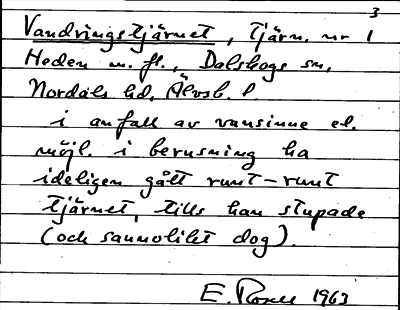 3
Vandringstjärnet, Tjärn. nr 1
Heden m. fl., Dalskogs sn,
Nordals hd. Älvsb. l.
i anfall av vansinne el.
möjl. i berusning ha
ideligen gått runt-runt
tjärnet, tills han stupade
(och sannolikt dog).
E. 1963